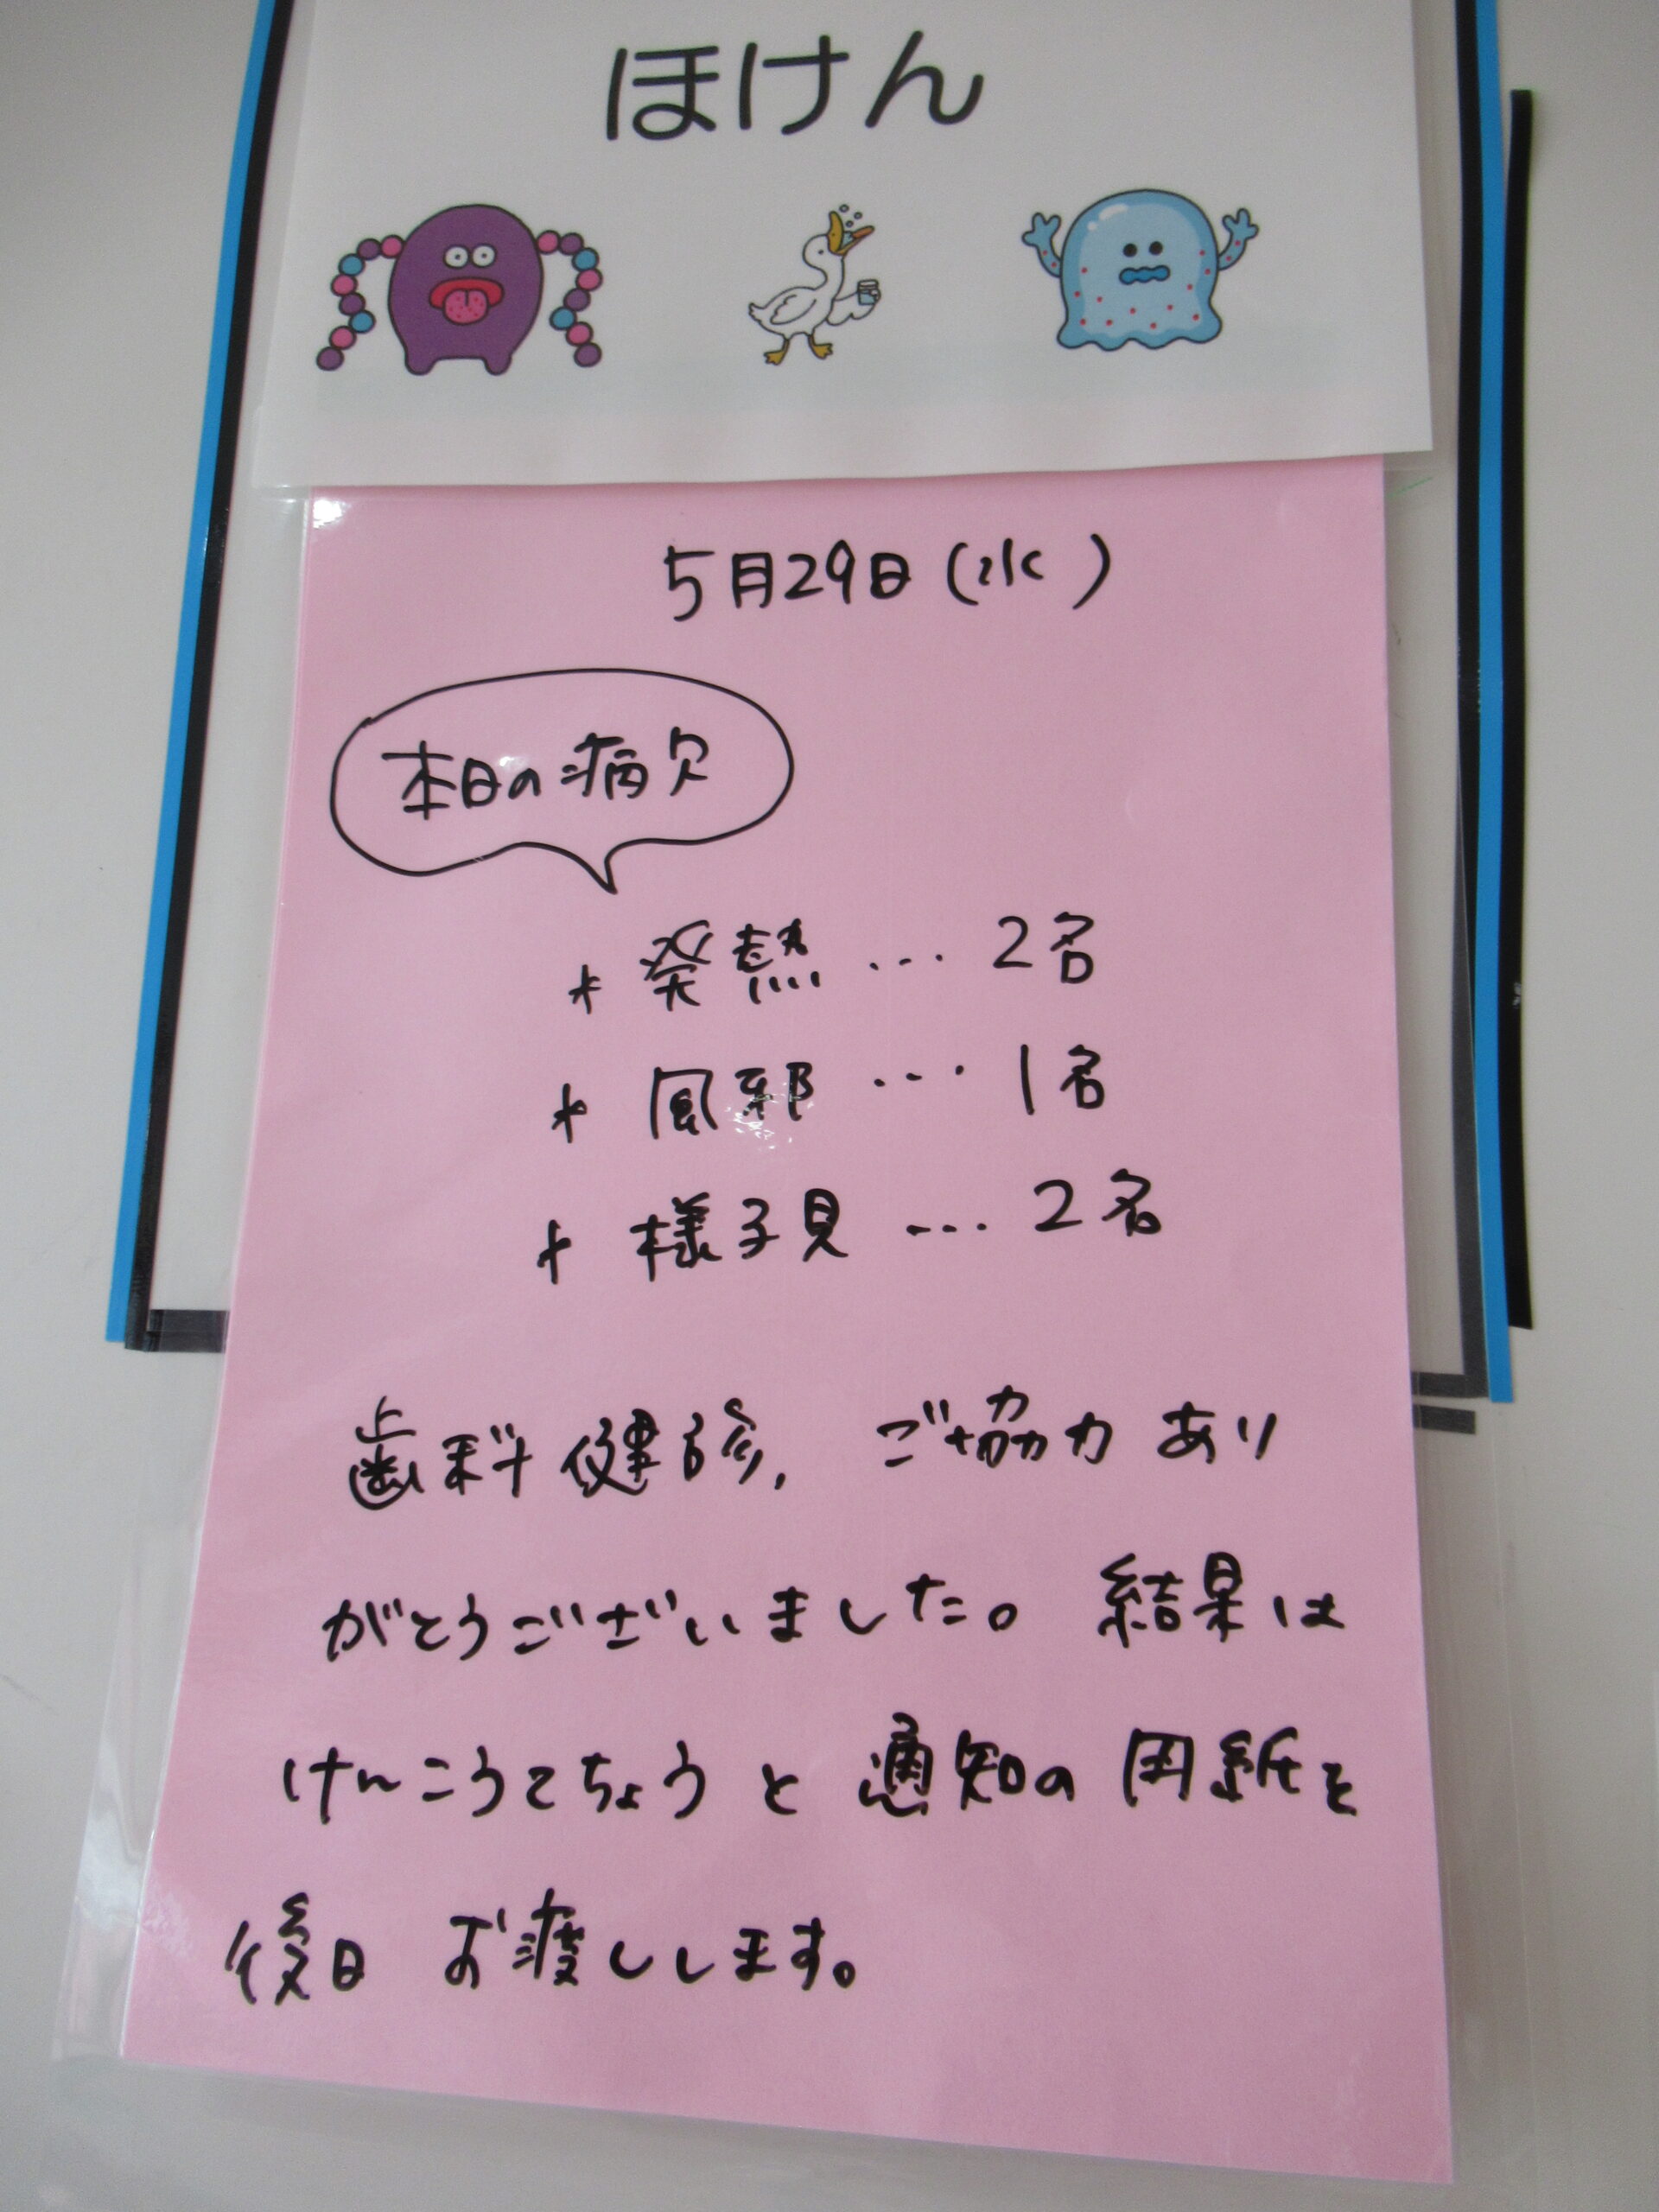 ほけん
5月29日(水)
本日の病欠
* 発熱 … 2名
* 風邪 … 1名
* 様子見 … 2名
歯科健診、ご協力あり
がとうございました。結果は
けんこうてちょうと通知の用紙を
後日 お渡しします。